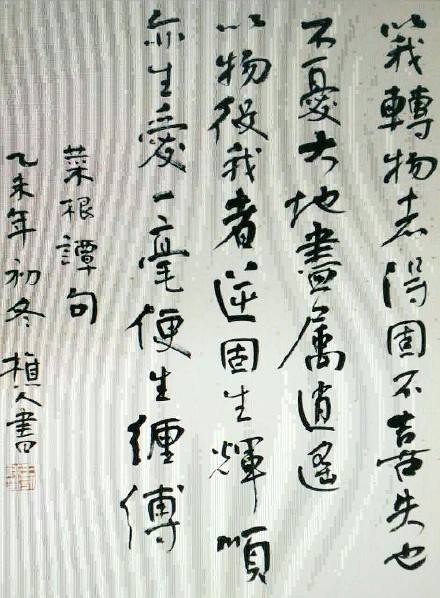 以我轉物者得固不喜失也
不憂大地盡屬逍遙
以物役我者逆固生輝順
亦生愛一毫便生纏縛
菜根譚句
乙未年初冬 樵人書